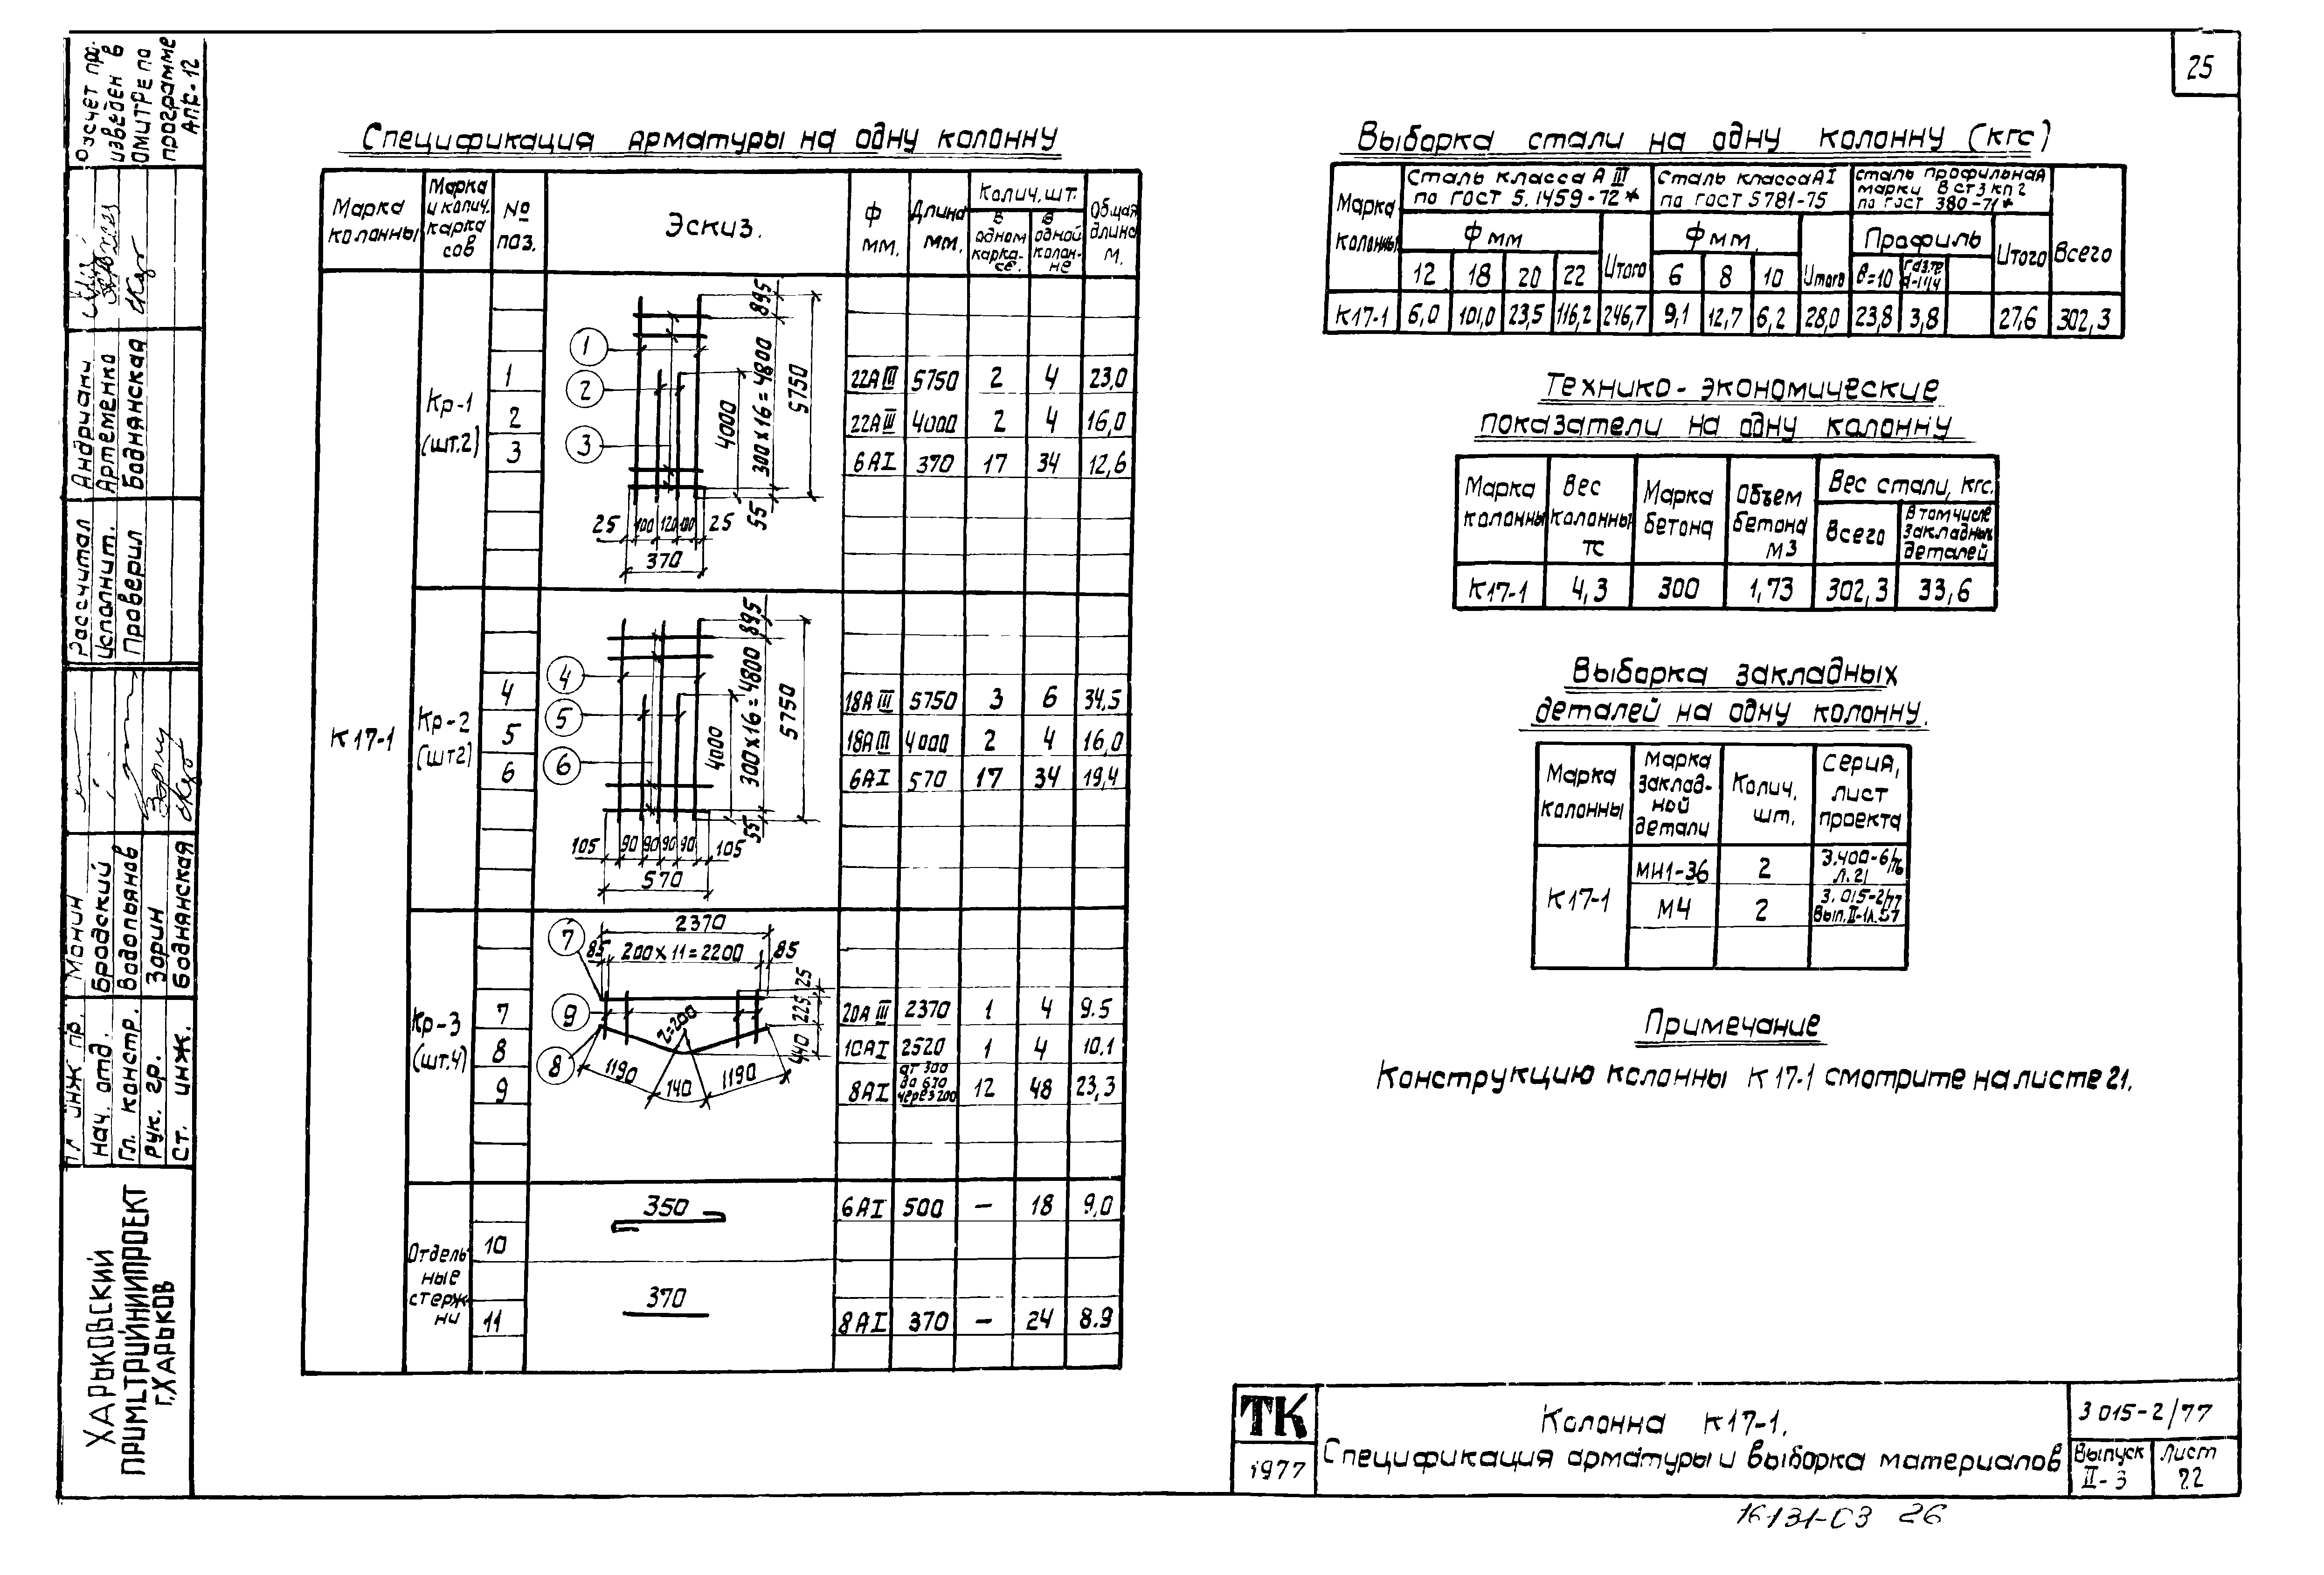 25
Расчет про-
изведен в
ОМИТРЕ по
программе
АПК-12
Рассчитал Андрианн
Исполнит. Артеменко
Проверил Боднянская
Гл. инж. пр. Монин
Нач. отд. Бродский
Гл. констр. Водопьянов
Рук. гр. Зорин
Ст. инж. Боднянская
Харьковский
г. Харьков
Спецификация арматуры на одну колонну
Марка колонны
Марка и колич. каркасов
№ поз.
Эскиз.
Ф мм.
Длина мм.
Колич, шт.
В одном карка-се.
В одной колон-не
Общая длина м.
К17-1
Кр-1 (шт.2)
1 22АIII 5750 2 4 23,0
2 22АIII 4000 2 4 16,0
3 6АI 370 17 34 12,6
1
2
3
895
300х16=4800
5750
4000
55
25 100 120 100 25
370
Кр-2 (шт2)
4 18АIII 5750 3 6 34,5
5 18АIII 4000 2 4 16,0
6 6АI 570 17 34 19,4
4
5
6
895
300х16=4800
5750
4000
55
105 90 90 90 90 105
570
Кр-3 (шт.4)
7 20АIII 2370 1 4 9.5
8 10АI 2520 1 4 10.1
9 8АI от 300 до 670 через 200 12 48 23,3
2370
7
85 200х11=2200 85
25
225
440
9
8
r=200
1190 140 1190
Отдель-
ные
стерж-
ни
350
10 6АI 500 — 18 9,0
370
11 8АI 370 — 24 8.9
Выборка стали на одну колонну (кгс)
Марка колонны
Сталь класса А III по ГОСТ 5.1459-72*
Сталь класса АI по ГОСТ 5781-75
Сталь профильная марки ВСт3кп2 по ГОСТ 380-71*
Всего
Ф мм Итого Ф мм Итого Профиль Итого
12 18 20 22 6 8 10 δ=10
К17-1 6,0 101,0 23,5 116,2 246,7 9,1 12,7 6,2 28,0 23,8 3,8 27,6 302,3
Технико-экономические
показатели на одну колонну
Марка колонны
Вес колонны тс
Марка бетона
Объем бетона м3
Вес стали, кгс.
Всего
В том числе закладных деталей
К17-1 4,3 300 1,73 302,3 33,6
Выборка закладных
деталей на одну колонну.
Марка колонны
Марка заклад-ной детали
Колич. шт.
Серия, лист проекта
К17-1
МН1-36 2 3.400-6/76 л.21
М4 2 3.015-2/77 Вып.II-1л.57
Примечание
Конструкцию колонны К17-1 смотрите на листе 21.
ТК
1977
Колонна К17-1.
Спецификация арматуры и выборка материалов
3 015-2/77
Выпуск II-3
Лист 22
16131-03 26